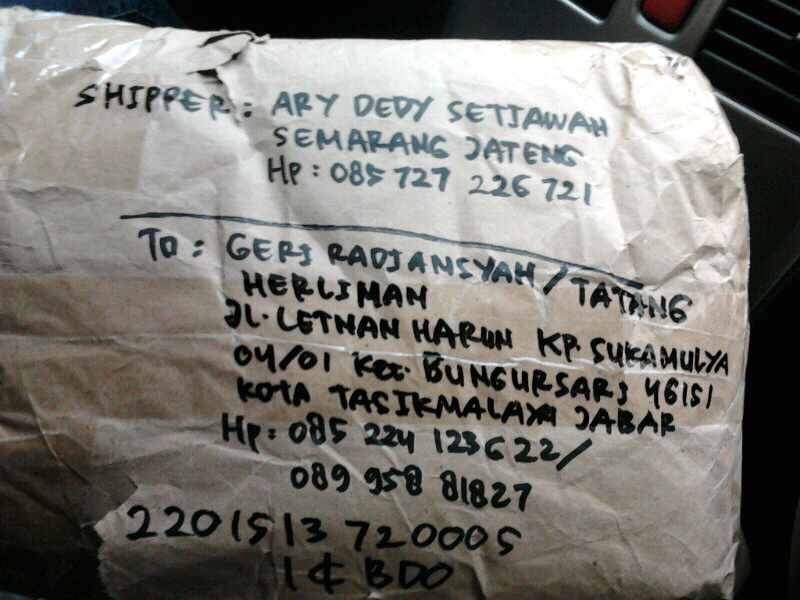 SHIPPER : ARY DEDY SETIAWAN
SEMARANG JATENG
HP : 085 727 226 721
TO : GERI RADIANSYAH / TATANG
HERLIMAN
JL. LETNAN HARUN KP. SUKAMULYA
04/01 Kec. BUNGURSARI 46151
KOTA TASIKMALAYA JABAR
HP : 085 224 123622 /
089 958 81827
2201513720005
BDO